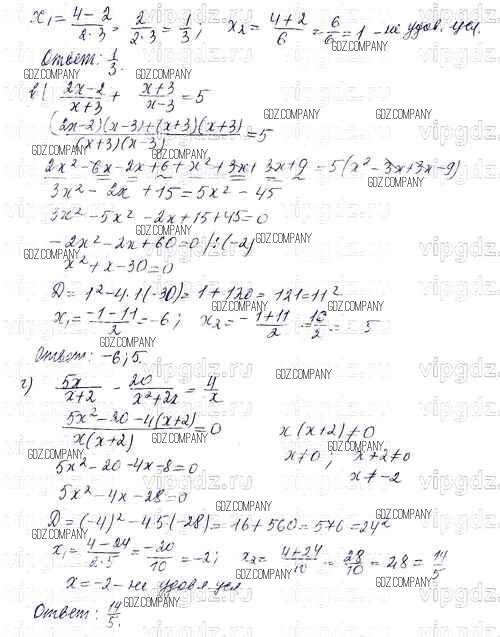 x₁ = (4-2)/(2·3) = 2/(2·3) = 1/3; x₂ = (4+2)/6 = 6/6 = 1 - не удов. усл.
Ответ: 1/3.
в) (2x-2)/(x+3) + (x+3)/(x-3) = 5
((2x-2)(x-3)+(x+3)(x+3))/((x+3)(x-3)) = 5
2x²-6x-2x+6+x²+3x+3x+9 = 5(x²-3x+3x-9)
3x² - 2x + 15 = 5x² - 45
3x² - 5x² - 2x + 15 + 45 = 0
-2x² - 2x + 60 = 0 /:(-2)
x² + x - 30 = 0
D = 1² - 4·1(-30) = 1 + 120 = 121 = 11²
x₁ = (-1-11)/2 = -6; x₂ = (-1+11)/2 = 10/2 = 5
Ответ: -6; 5.
г) 5x/(x+2) - 20/(x²+2x) = 4/x
(5x²-20-4(x+2))/(x(x+2)) = 0 x(x+2)≠0
5x²-20-4x-8=0 x≠0; x+2≠0
5x²-4x-28=0 x≠-2
D = (-4)² - 4·5(-28) = 16 + 560 = 576 = 24²
x₁ = (4-24)/(2·5) = -20/10 = -2; x₂ = (4+24)/10 = 28/10 = 2,8 = 14/5
x = -2 - не удов. усл.
Ответ: 14/5.
GDZ.COMPANY
vipgdz.com
vipgdz.ru